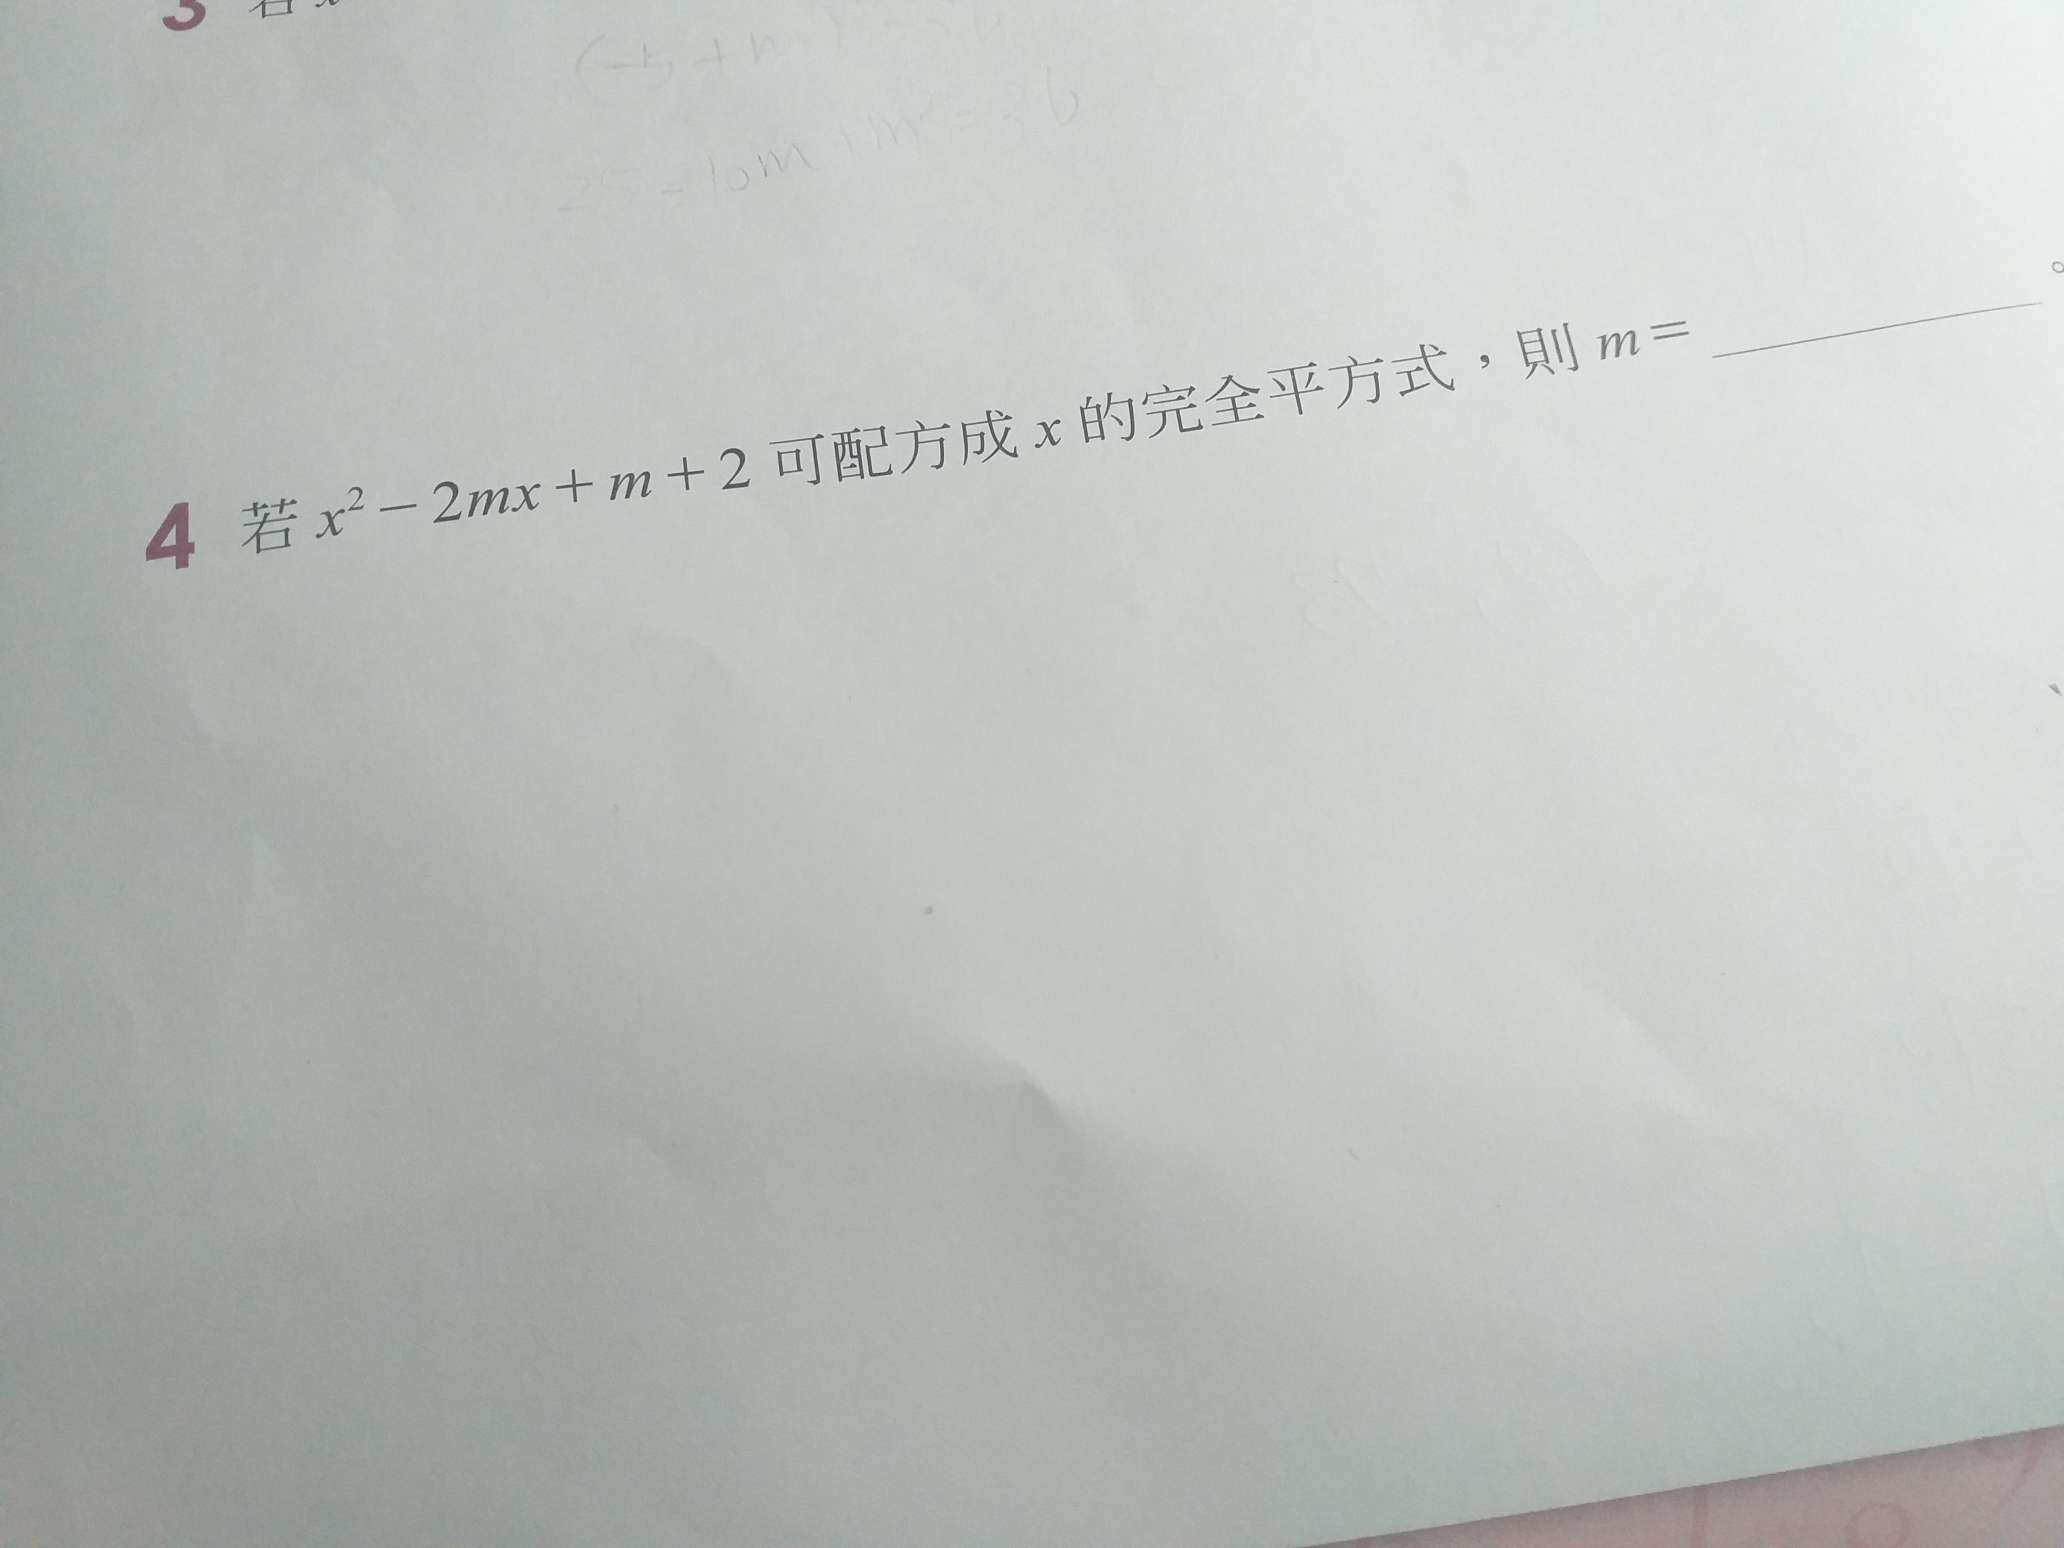 3 若 x
25 - 10m + m² = 36
4 若 x² - 2mx + m + 2 可配方成 x 的完全平方式，則 m = ________。